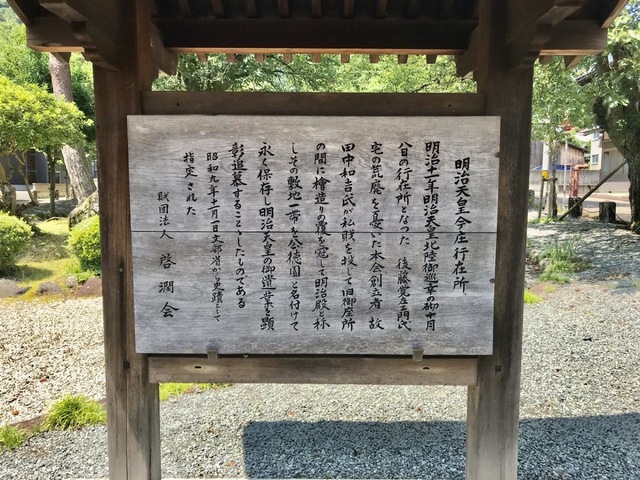 明治天皇今庄行在所
明治十一年明治天皇北陸御巡幸の砌十月
八日の行在所となった 後藤覚左エ門氏
宅の荒廃を憂いた本会創立者 故
田中和吉氏が私財を投じて旧御座所
の間に檜造りの覆を冠して明治殿と称
しその敷地一帯を公徳園と名付けて
永く保存し明治天皇の御遺業を顕
彰追慕することとしたものである
昭和九年十一月一日文部省から史蹟として
指定された
財団法人 啓潤会